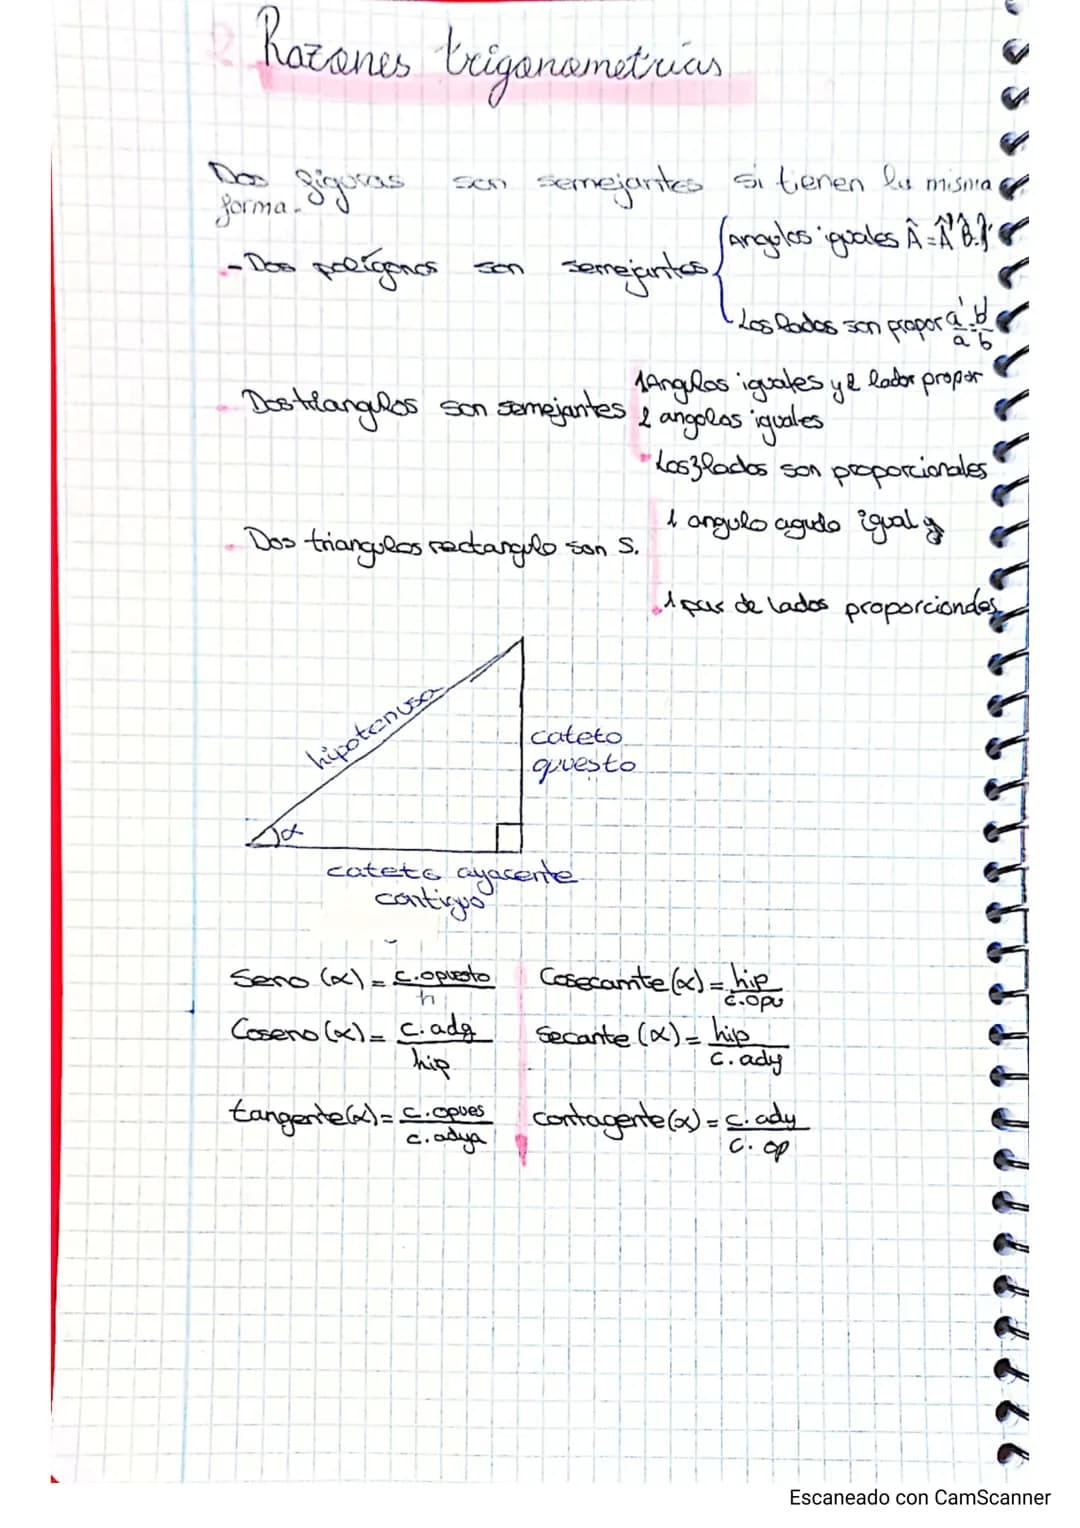 Razones trigonometrias
Dos figuras son semejantes si tienen la misma
forma.
- Dos polígonos son semejantes
Angulos iguales Â=Â' B̂=B̂'
Los lados son propor a'/a = b'/b
Dos triangulos son semejantes
1 Angulos iguales y 2 lados propor
2 angolos iguales
Los 3 lados son proporcionales
Dos triangulos rectangulo son S.
1 angulo agudo igual y
1 par de lados proporcionales
hipotenusa
cateto
opuesto
α
cateto ayacente
contiguo
Seno (α) = c.opuesto/h
Cosecamte (α) = hip/c.opu
Coseno (α) = c.ady/hip
Secante (α) = hip/c.ady
tangente (α) = c.opues/c.adya
contagente (α) = c.ady/c.op
Escaneado con CamScanner